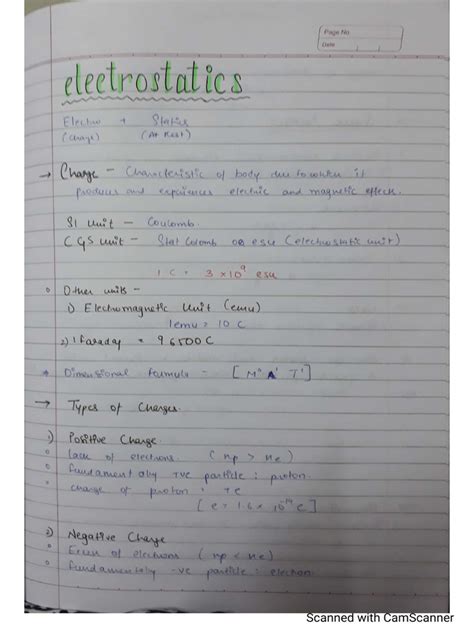 Page No
Date
electrostatics
Electro + Statics
(Charge) (At Rest)
→ Charge - Characteristic of body due to which it
produces and experiences electric and magnetic effects.
SI Unit - Coulomb.
C G S Unit - Stat Colomb or esu (electrostatic unit)
1 C = 3 × 10⁹ esu
Other units -
1) Electromagnetic Unit (emu)
1emu = 10 C
2) 1 Faraday = 96500C
Dimensional formula = [ M⁰ A¹ T¹]
→ Types of Charges
1) Positive Charge
lack of electrons. (np > ne)
fundamentaly +ve particle : proton.
charge of proton : +e
[e = 1.6 × 10⁻¹⁹ C]
2) Negative Charge
Excess of electrons (np < ne)
fundamentaly -ve particle : electron.
Scanned with CamScanner